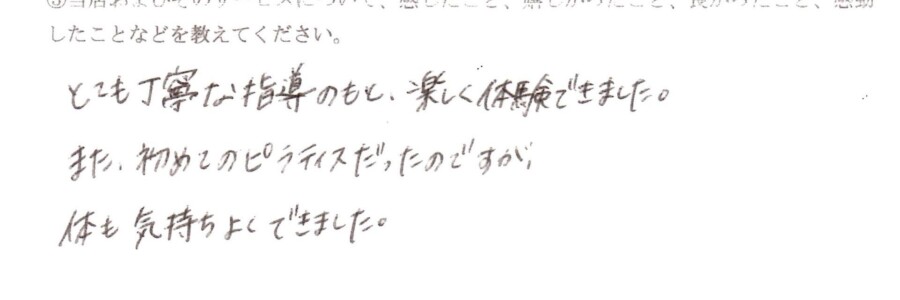 ③当店およびそのサービスについて、感じたこと、嬉しかったこと、良かったこと、感動
したことなどを教えてください。
とても丁寧な指導のもと、楽しく体験できました。
また、初めてのピラティスだったのですが、
体も気持ちよくできました。